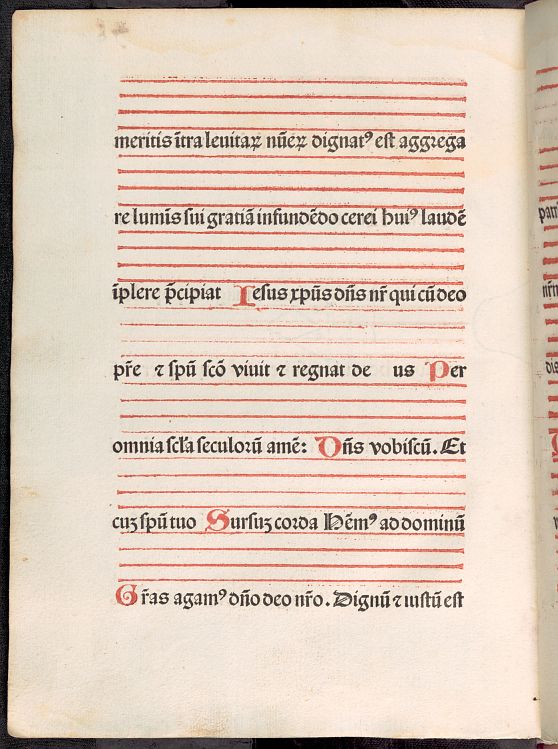 meritis ītra leuitaꝝ nūeꝝ dignatꝰ est aggrega
re lumīs sui gratiā infundēdo cerei huiꝰ laudē
īplere p̄cipiat Iesus xp̄us dn̄s nr̄ qui cū deo
pr̄e ⁊ spū scō viuit ⁊ regnat de us Per
omnia scl̄a seculorū amē: Dn̄s vobiscū. Et
cuꝫ spū tuo Sursuꝫ corda Hēmꝰ ad dominū
Gr̄as agamꝰ dn̄o deo nr̄o. Dignū ⁊ iustū est
patri
nr̄m
dis